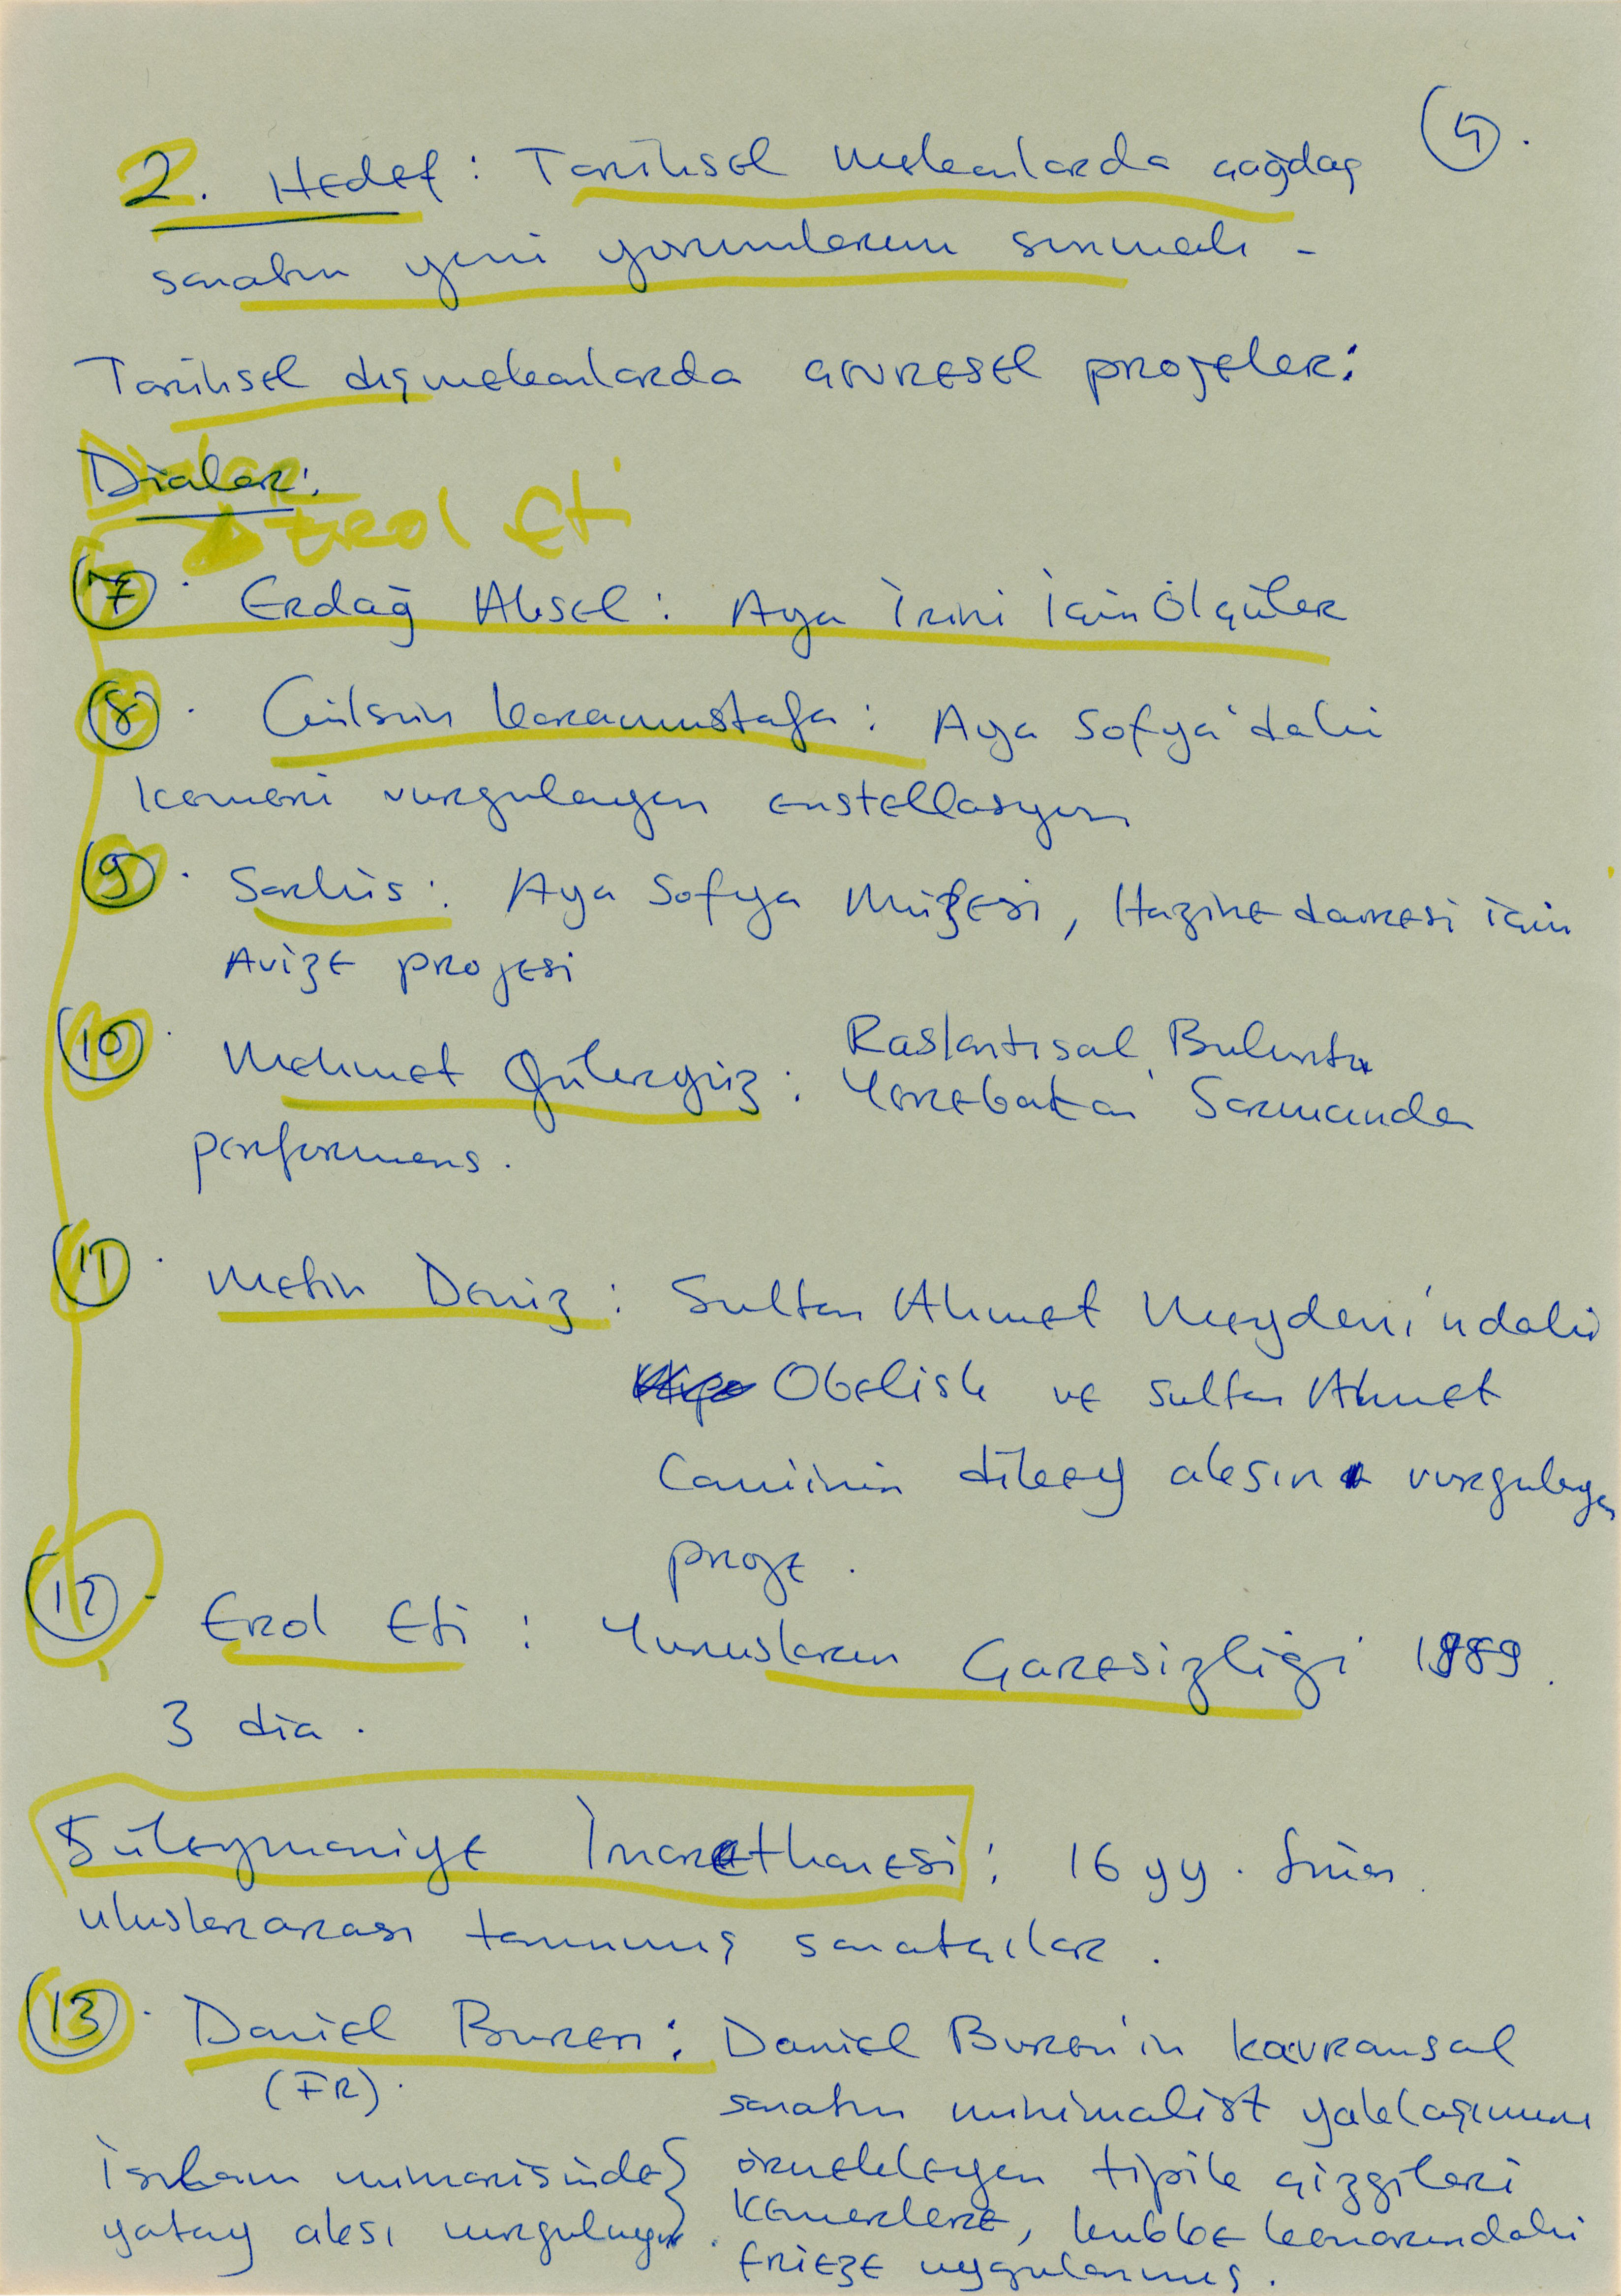 4.
2. Hedef: Tarihsel mekanlarda çağdaş
sanatın yeni yorumlarını sunmak -
Tarihsel dışmekanlarda çevresel projeler:
Dialar:
Erol Eti
7. Erdağ Aksel: Aya İrini İçin Ölçüler
8. Gülsün Karamustafa: Aya Sofya'daki
kemeri vurgulayan enstellasyon
9. Sarkis: Aya Sofya Müzesi, Hazine dairesi için
Avize projesi
10. Mehmet Güleryüz: Raslantısal Buluntu
Yerebatan Sarnıcında
performans.
11. Metin Deniz: Sultan Ahmet Meydanı'ndaki
Obelisk ve Sultan Ahmet
Camiinin dikey aksını vurgulayan
proje.
12. Erol Eti: Yunusların Çaresizliği 1989.
3 dia.
Süleymaniye İmarethanesi: 16 yy. Sinan.
uluslararası tanınmış sanatçılar.
13. Daniel Buren: Daniel Buren'in kavramsal
(FR). sanatın minimalist yaklaşımını
İslam mimarisinde örnekleyen tipik çizgileri
yatay aksı vurgulayan. kemerlere, kubbe kenarındaki
frieze uygulanmış.